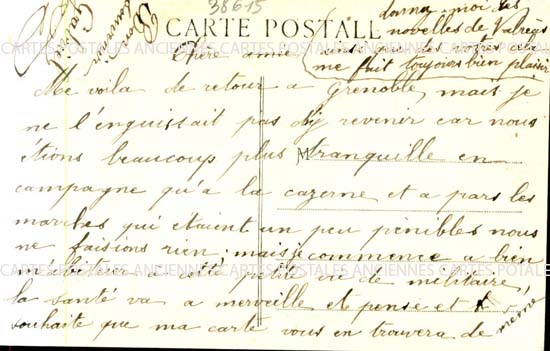 38615
CARTE POSTALE
donnez-moi des
nouvelles de Valréas
ainsi que des votres cela
me fait toujours bien plaisir
Bon
souvenir
Gabriel
Chère amie
Me voila de retour a Grenoble, mais je
ne l'enguissait pas d'y revenir car nous
étions beaucoup plus tranquille en
campagne qu'a la cazerne et a pars les
marches qui étaient un peu pénibles nous
ne faisions rien; mais je commence a bien
m'abituer a cette petite vie de militaire,
la santé va a merveille et pense et
souhaite que ma carte vous en trouvera de même
CARTES POSTALES ANCIENNES CARTES POSTALES ANCIENNES CARTES POSTALES